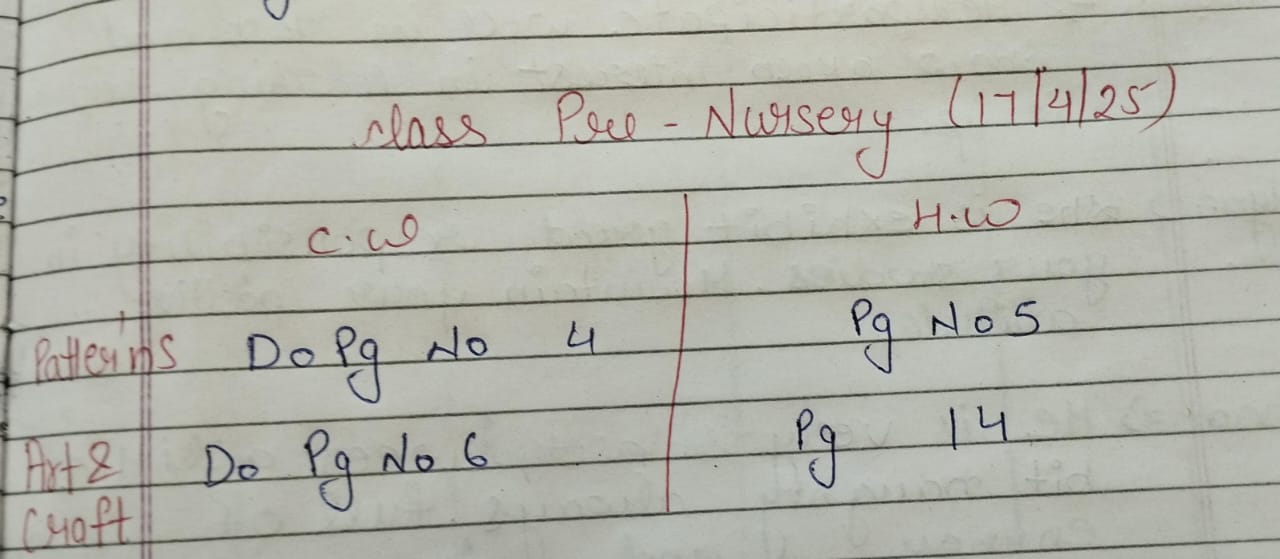 Class Pre-Nursery (17/4/25)
C.W H.W
Patterns Do Pg No 4 Pg No 5
Art & Do Pg No 6 Pg 14
Craft